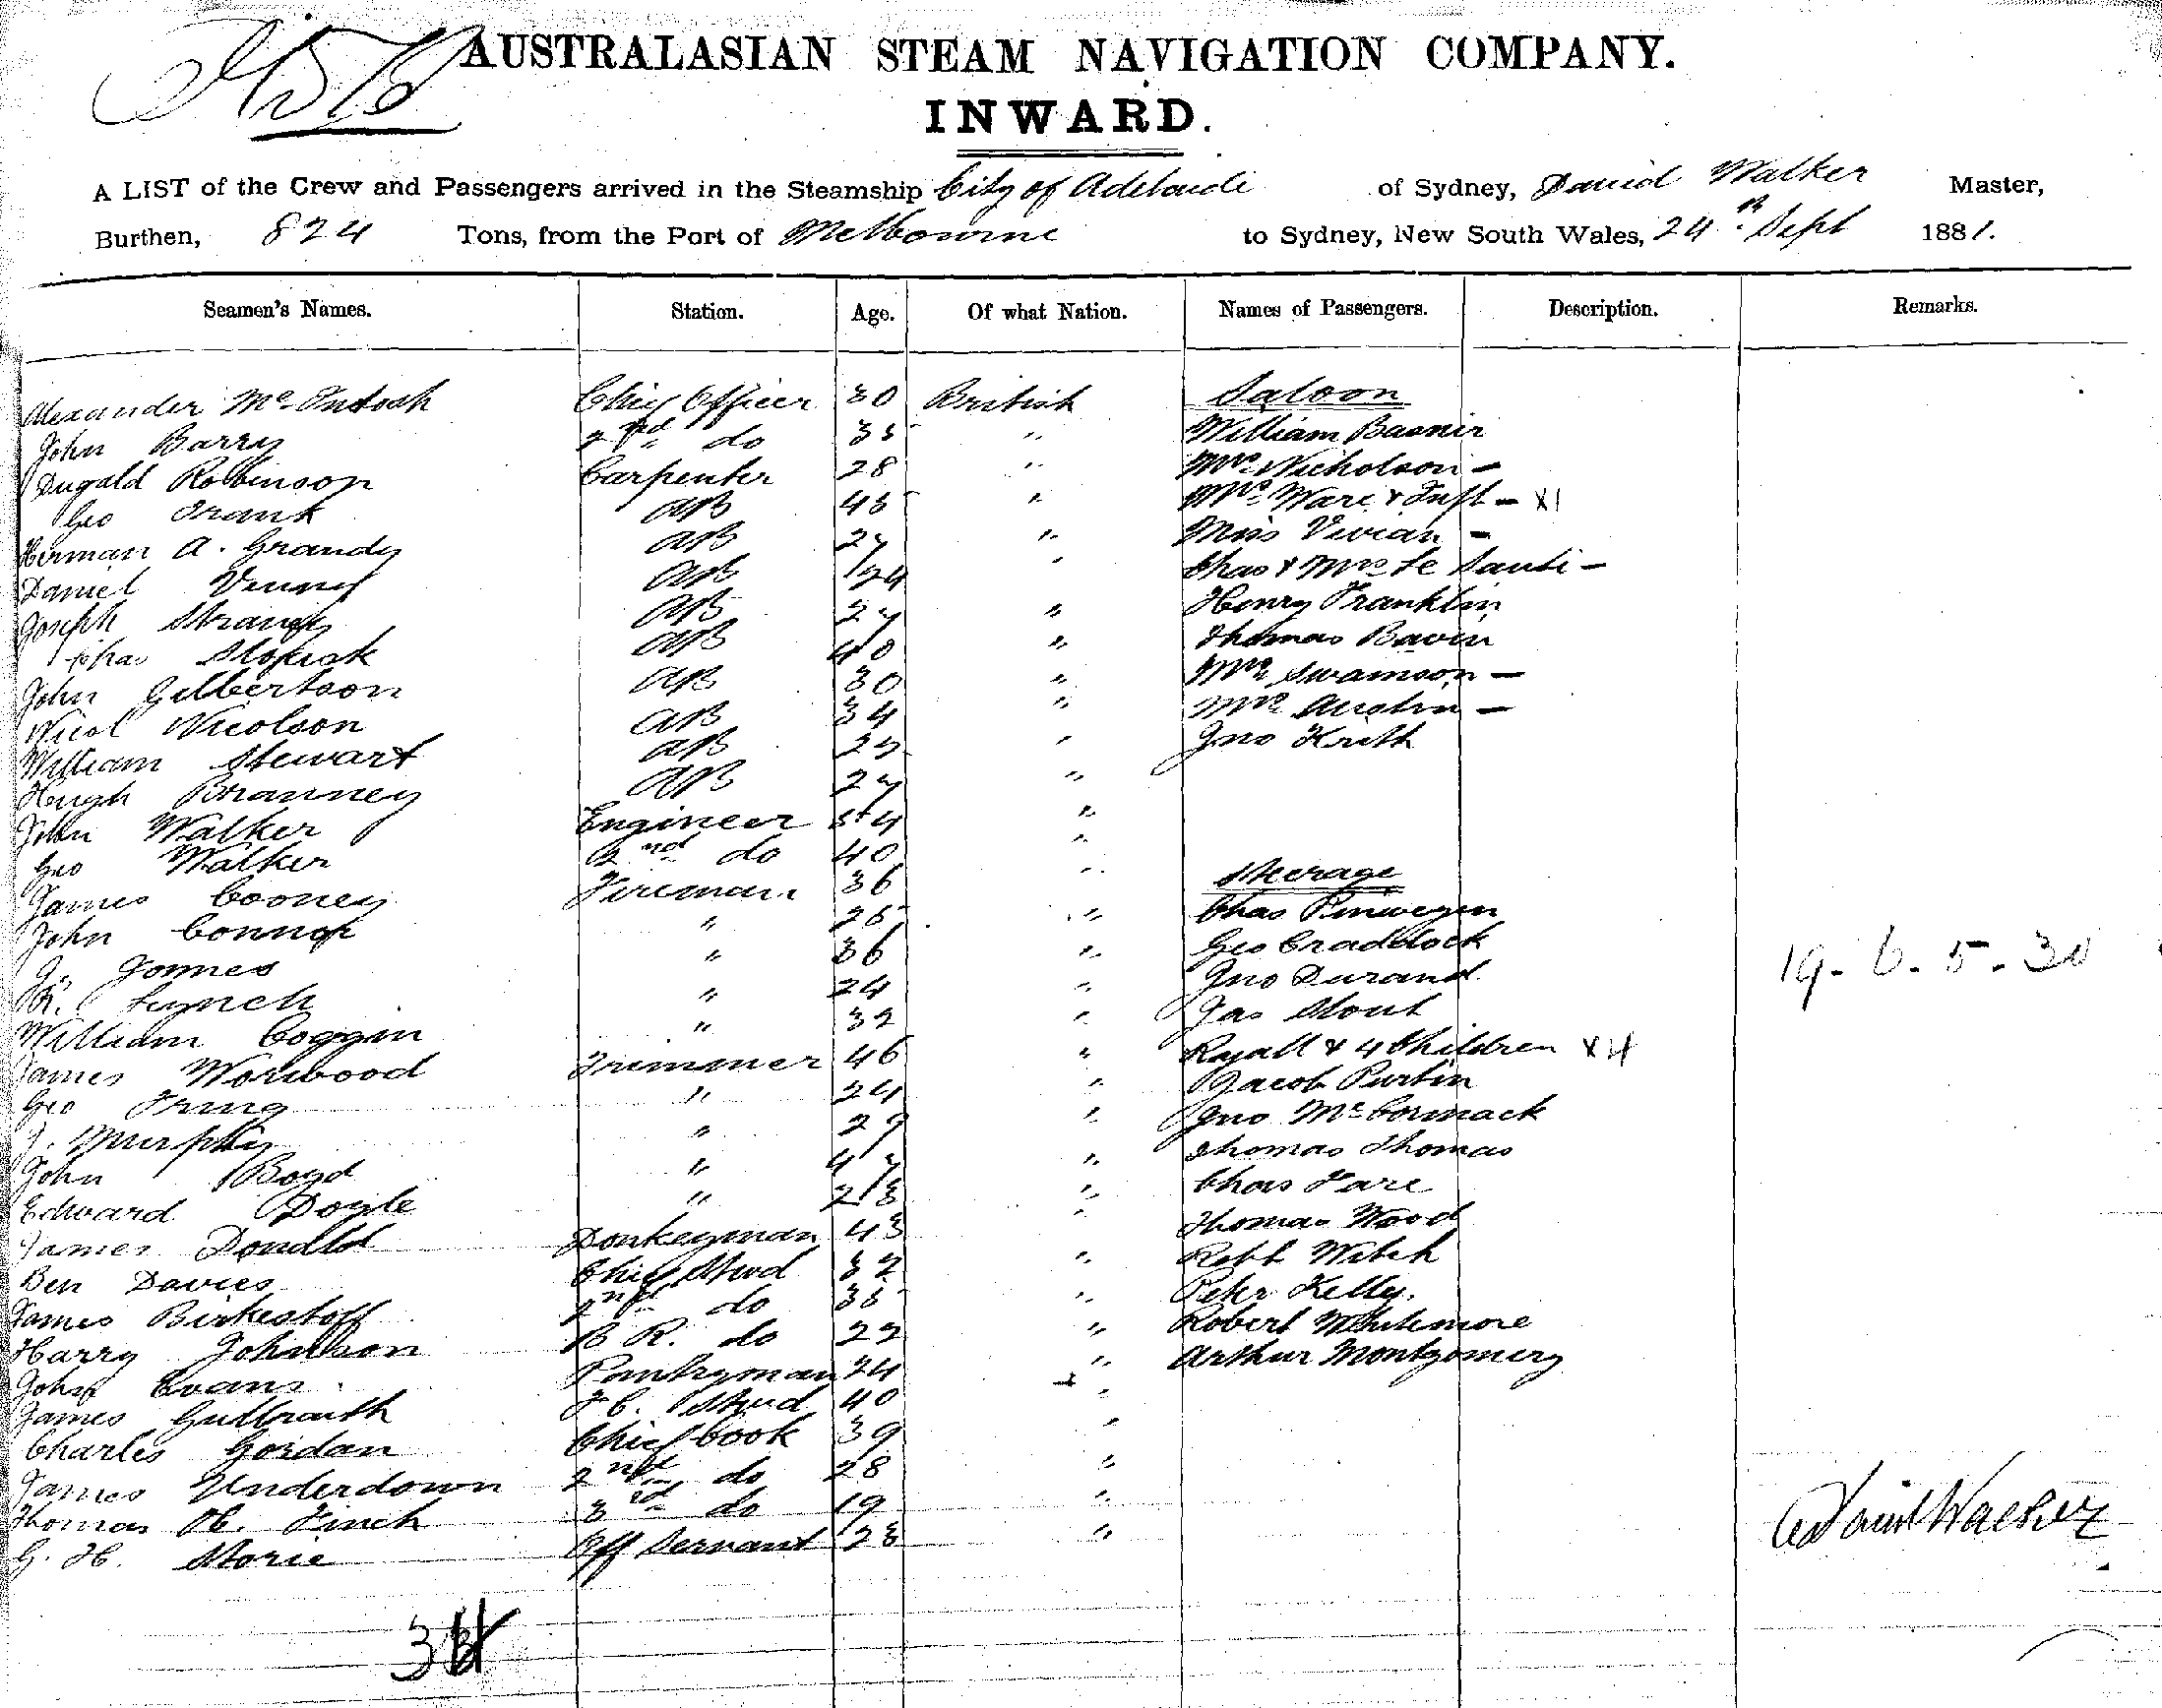 AUSTRALASIAN STEAM NAVIGATION COMPANY.
INWARD.
A LIST of the Crew and Passengers arrived in the Steamship City of Adelaide of Sydney, David Walker Master,
Burthen, 824 Tons, from the Port of Melbourne to Sydney, New South Wales, 24th Sept 1881.
Seamen's Names. Station. Age. Of what Nation. Names of Passengers. Description. Remarks.
Alexander McIntosh Chief Officer 30 British Saloon
John Barry 2nd do 35 " William
Dugald Robinson Carpenter 28 " Mrs Nicholson -
Geo AB 45 " Mrs Ware & Inft - X1
Herman A. Grandy AB 27 " Miss Vivian -
Daniel AB 24 " Chas & Mrs Le -
Joseph AB 27 " Henry Franklin
Chas AB 40 " Thomas Bavin
John Gilbertson AB 30 " Mrs Swanson -
Nicol Nicolson AB 34 " Mrs Austin -
William Stewart AB " Jno
Hugh Branney AB 27 "
John Walker Engineer 54 "
Geo Walker 2nd do 40 "
James Cooney Fireman 36 " Steerage
John Connor " 26 " Chas
J. Jones " 36 " Geo Craddock
R. Lynch " 24 " Jno Durand
William Coggin " 32 " Jas Stout
James Trimmer 46 " Ryall & 4 Children X4
Geo " 24 " Jacob Purtin
J. Murphy " 29 " Jno McCormack
John Boyd " 47 " Thomas Thomas
Edward Doyle " 28 " Chas
James Donald Donkeyman 43 " Thomas Wood
Ben Davies Chief Stwd 32 " Robt
James 2nd do 35 " Peter Kelly.
Harry Johnson B R. do 22 " Robert Whitemore
John Evans Pantryman 24 " Arthur Montgomery
James F C. Stwd 40 "
Charles Gordan Chief Cook 39 "
James Underdown 2nd do 28 "
Thomas H. Finch 3rd do 19 "
G. H. Storie Off Servant 28 "
19 - 6 - 5 - 30
David Walker